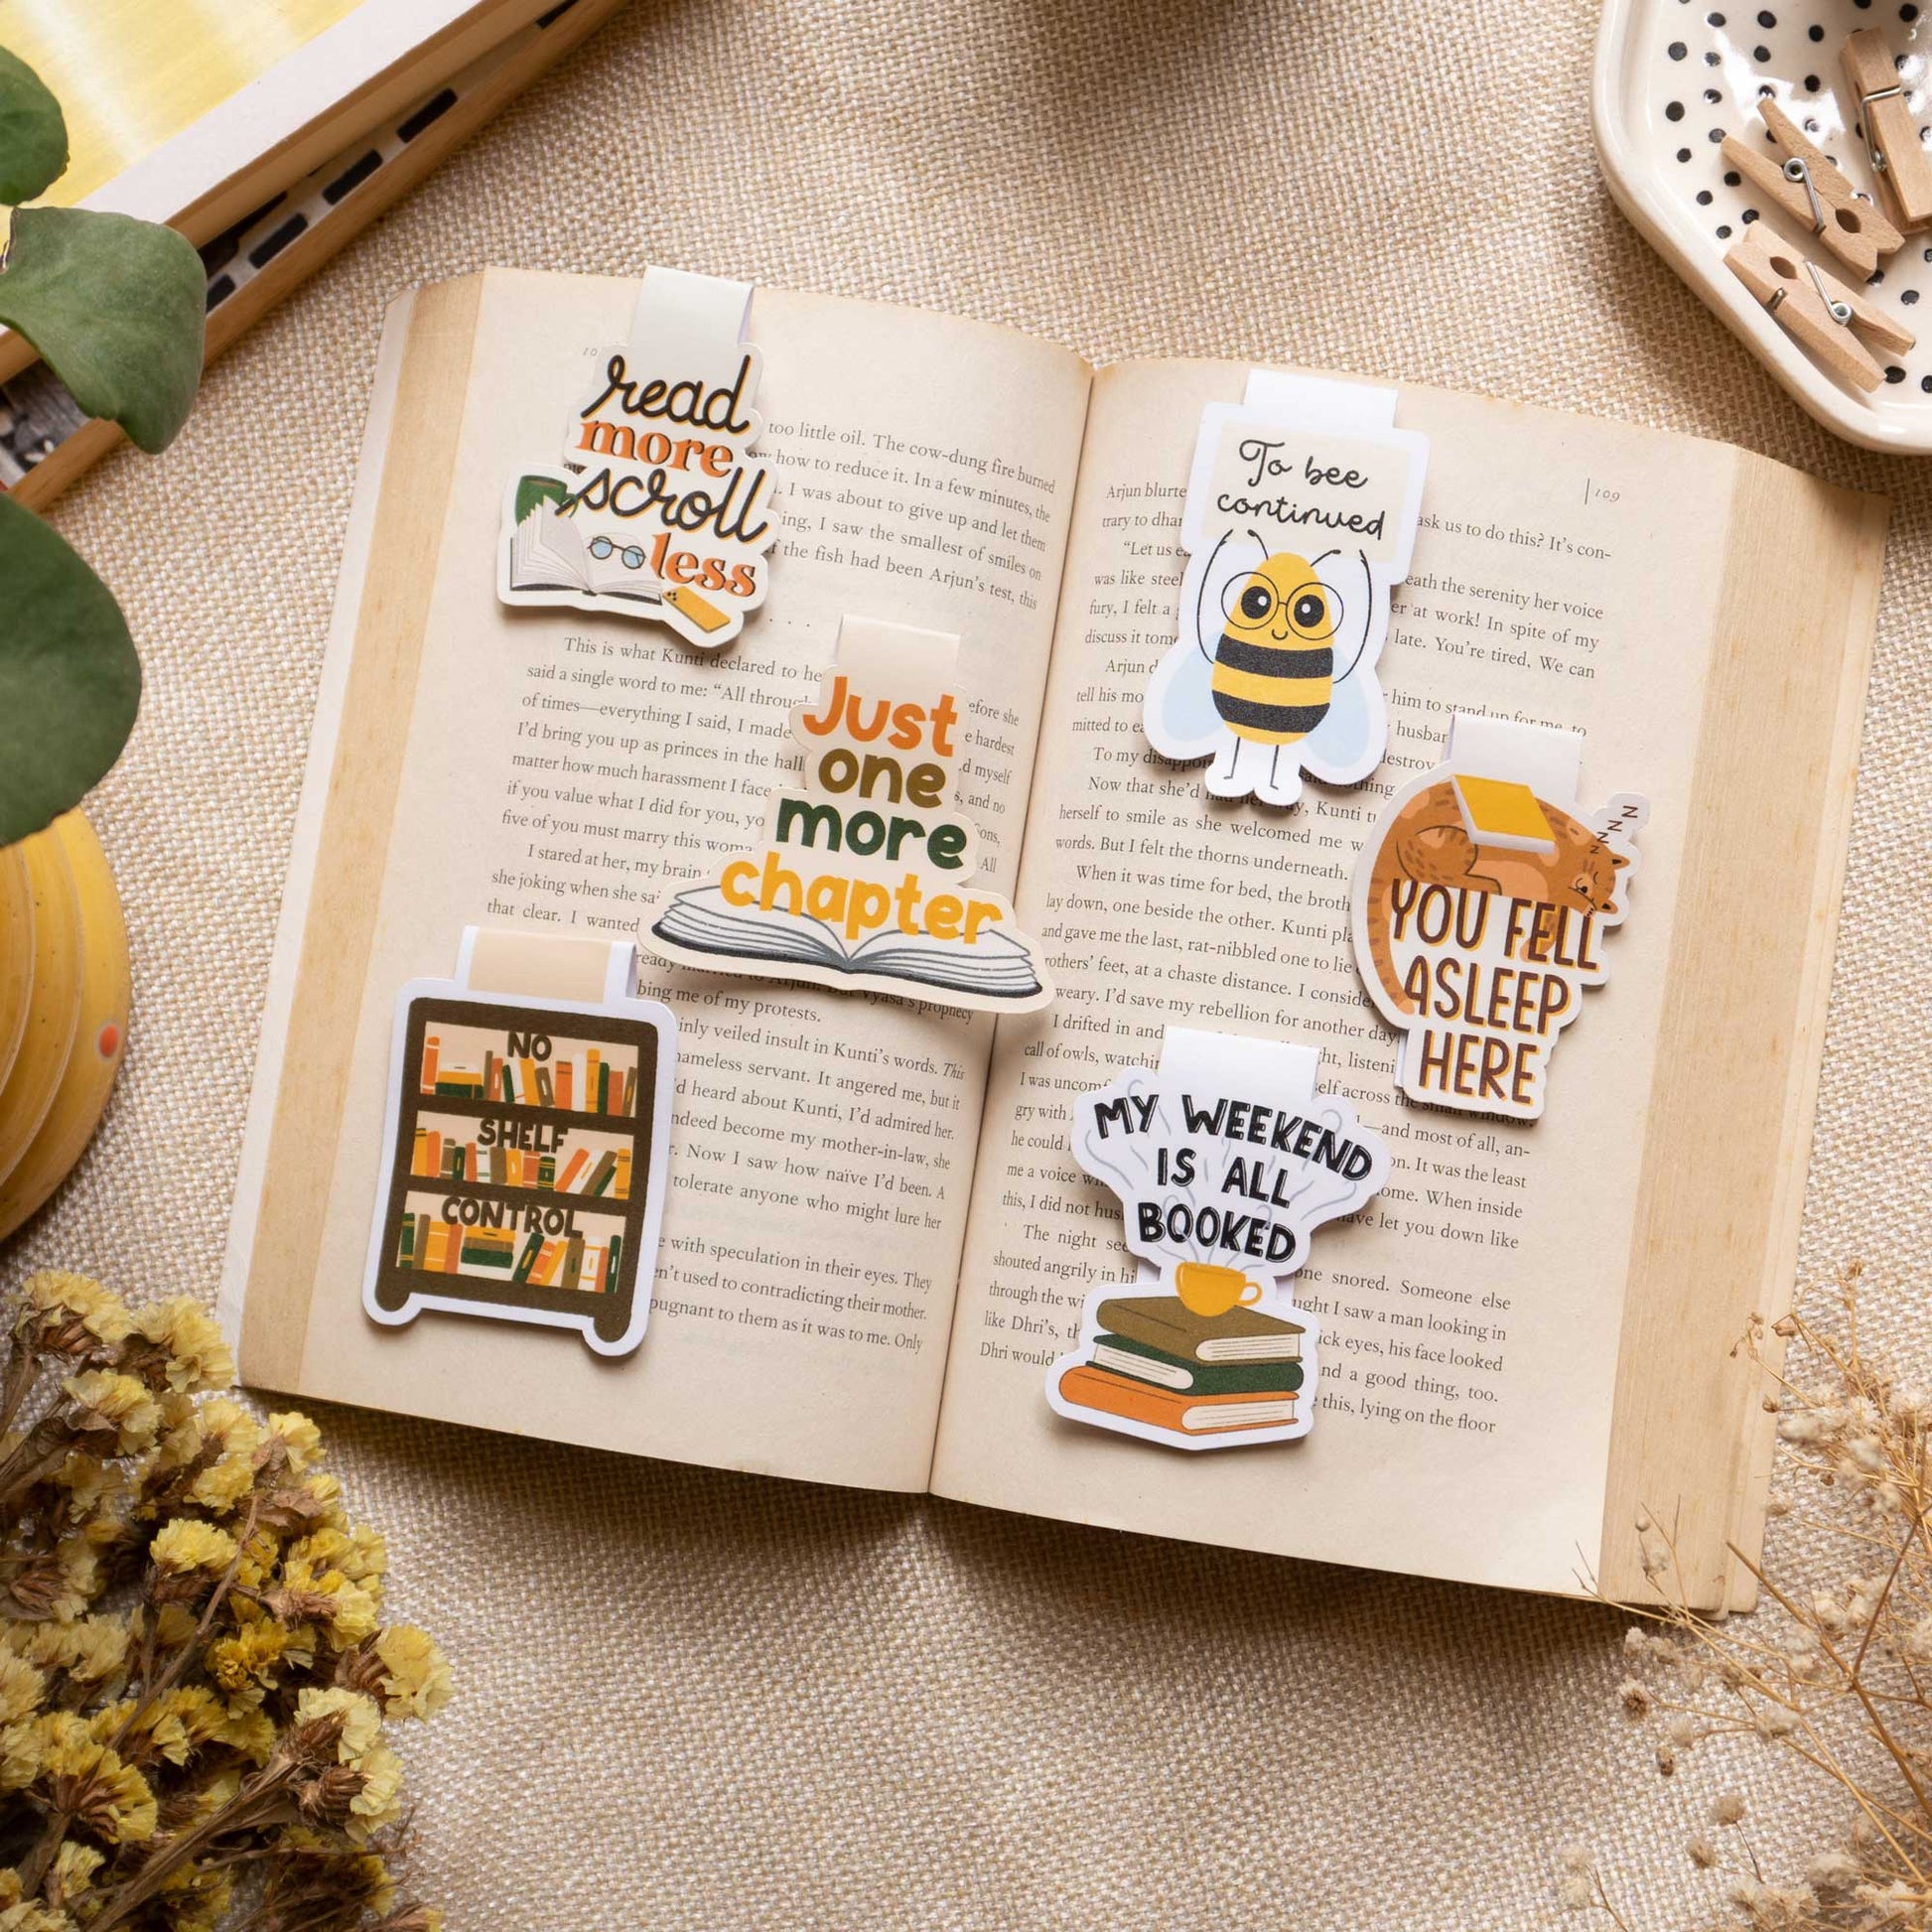 read
more
scroll
less
too little oil. The cow-dung fire burned
how to reduce it. In a few minutes, the
I was about to give up and let them
ing, I saw the smallest of smiles on
f the fish had been Arjun's test, this
This is what Kunti declared to he
said a single word to me: "All throug
efore she
of times—everything I said, I made
e hardest
I'd bring you up as princes in the hall
d myself
matter how much harassment I face
s, and no
if you value what I did for you, yo
ons,
five of you must marry this woma
All
I stared at her, my brain
she joking when she sa
that clear. I wanted
Just
one
more
chapter
ready married to Arjun! But Vyasa's prophecy
bing me of my protests.
inly veiled insult in Kunti's words. This
nameless servant. It angered me, but it
'd heard about Kunti, I'd admired her.
ndeed become my mother-in-law, she
r. Now I saw how naïve I'd been. A
tolerate anyone who might lure her
e with speculation in their eyes. They
en't used to contradicting their mother.
pugnant to them as it was to me. Only
NO
SHELF
CONTROL
109
To bee
continued
Arjun blurte
ask us to do this? It's con-
trary to dhar
"Let us ea
eath the serenity her voice
was like steel
er at work! In spite of my
fury, I felt a
late. You're tired. We can
discuss it tom
Arjun d
him to stand up for me, to
tell his mo
husban
mitted to ea
destroy
To my disappoi
thing
Now that she'd had her say, Kunti tu
herself to smile as she welcomed me w
words. But I felt the thorns underneath.
When it was time for bed, the broth
lay down, one beside the other. Kunti pla
and gave me the last, rat-nibbled one to lie
rothers' feet, at a chaste distance. I conside
weary. I'd save my rebellion for another day
I drifted in and
ght, listeni
call of owls, watchin
self across the small window.
I was uncomf
—and most of all, an-
gry with
on. It was the least
he could
ome. When inside
me a voice w
have let you down like
this, I did not hus
The night see
one snored. Someone else
shouted angrily in hi
ught I saw a man looking in
through the wi
ick eyes, his face looked
like Dhri's, th
nd a good thing, too.
Dhri would
this, lying on the floor
Z
Z
Z
Z
Z
YOU FELL
ASLEEP
HERE
MY WEEKEND
IS ALL
BOOKED